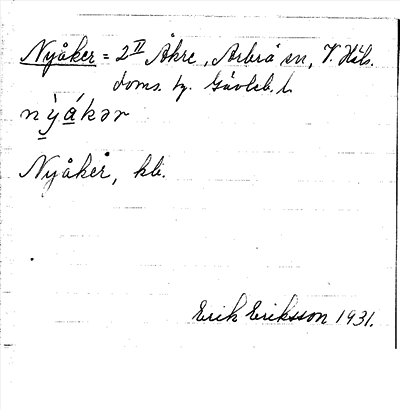 Nyåker = 2II Åkre, Arbrå sn, V. Häls.
doms. tg. Gävleb. l.
nỳ̲á̲kər
Nyåker, kb.
Erik Eriksson 1931.